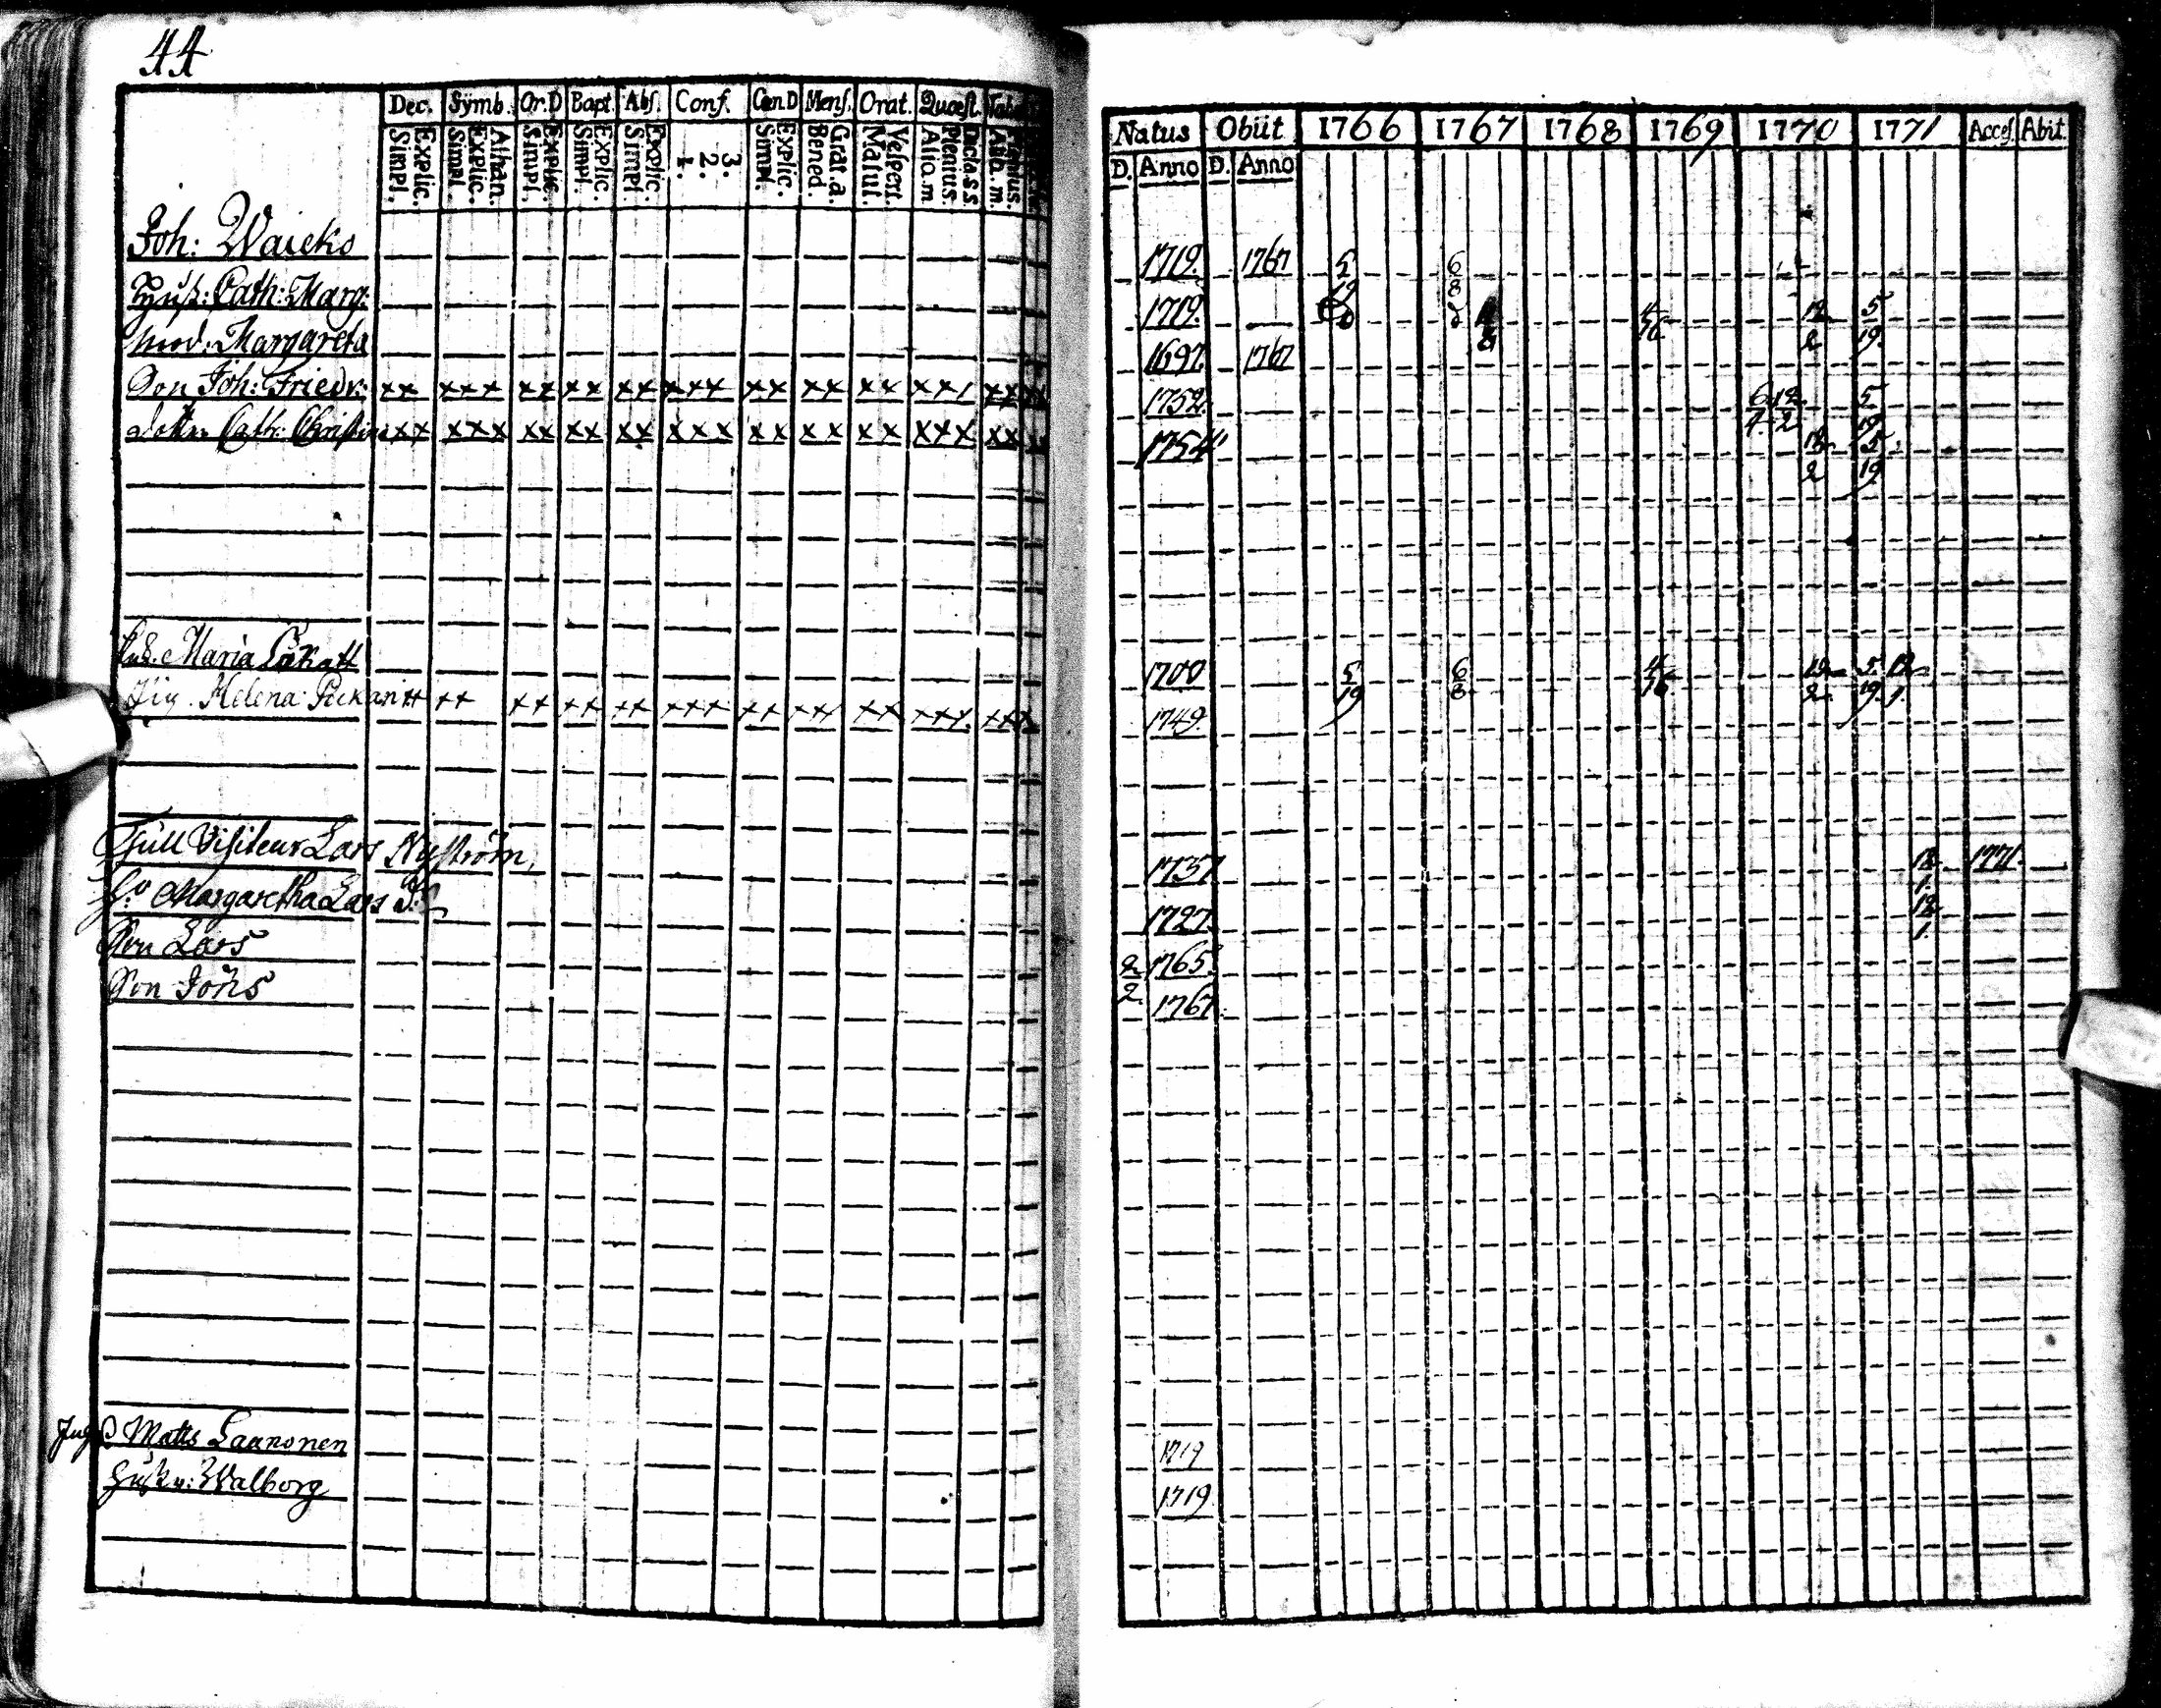 44
Dec. Symb. Or.D Bapt. Abſ. Conf. Cœn D Menſ. Orat. Quœſt.
Simpl. Explic. Simpl. Explic. Athan. Simpl. Explic. Simpl. Explic. Simpl. Explic. 1. 2. 3. Simpl. Explic. Bened. Grat.a. Matut. Veſpert. Aliq.m Plenius. Dicta S S Aliq.m Plenius.
Joh: Waicko
Cath: Marg:
Mod: Margareta
Son Joh: Friedr: xx xxx xx xx xx xxx xx xx xx xx/ xx xx
dottr Cath: Christina xx xxx xx xx xx xxx xx xx xx xxx xx
Maria
Pig. Helena Peckain xx xx xx xx xx xxx xx xx xx xxx xxx
Tull Visiteur Lars Nyström,
H:o Margaretha Lars D:r
Son Lars
Son Jöns
Matts Laanonen
Hustr: Walborg
Natus Obiit 1766 1767 1768 1769 1770 1771 Acceſ. Abit.
D. Anno D. Anno
1719. 1767 5 19 6 8
1719. 4 16 12 2 5 19.
1697. 1767
1752. 6 12 4 2 5 19
1754 12 2 5 19
1700 5 19 6 8 4 16 12 2 5 12 19 1.
1749.
1737 12 1. 1771.
1727. 12 1.
2 2 1765.
1767.
1719
1719.